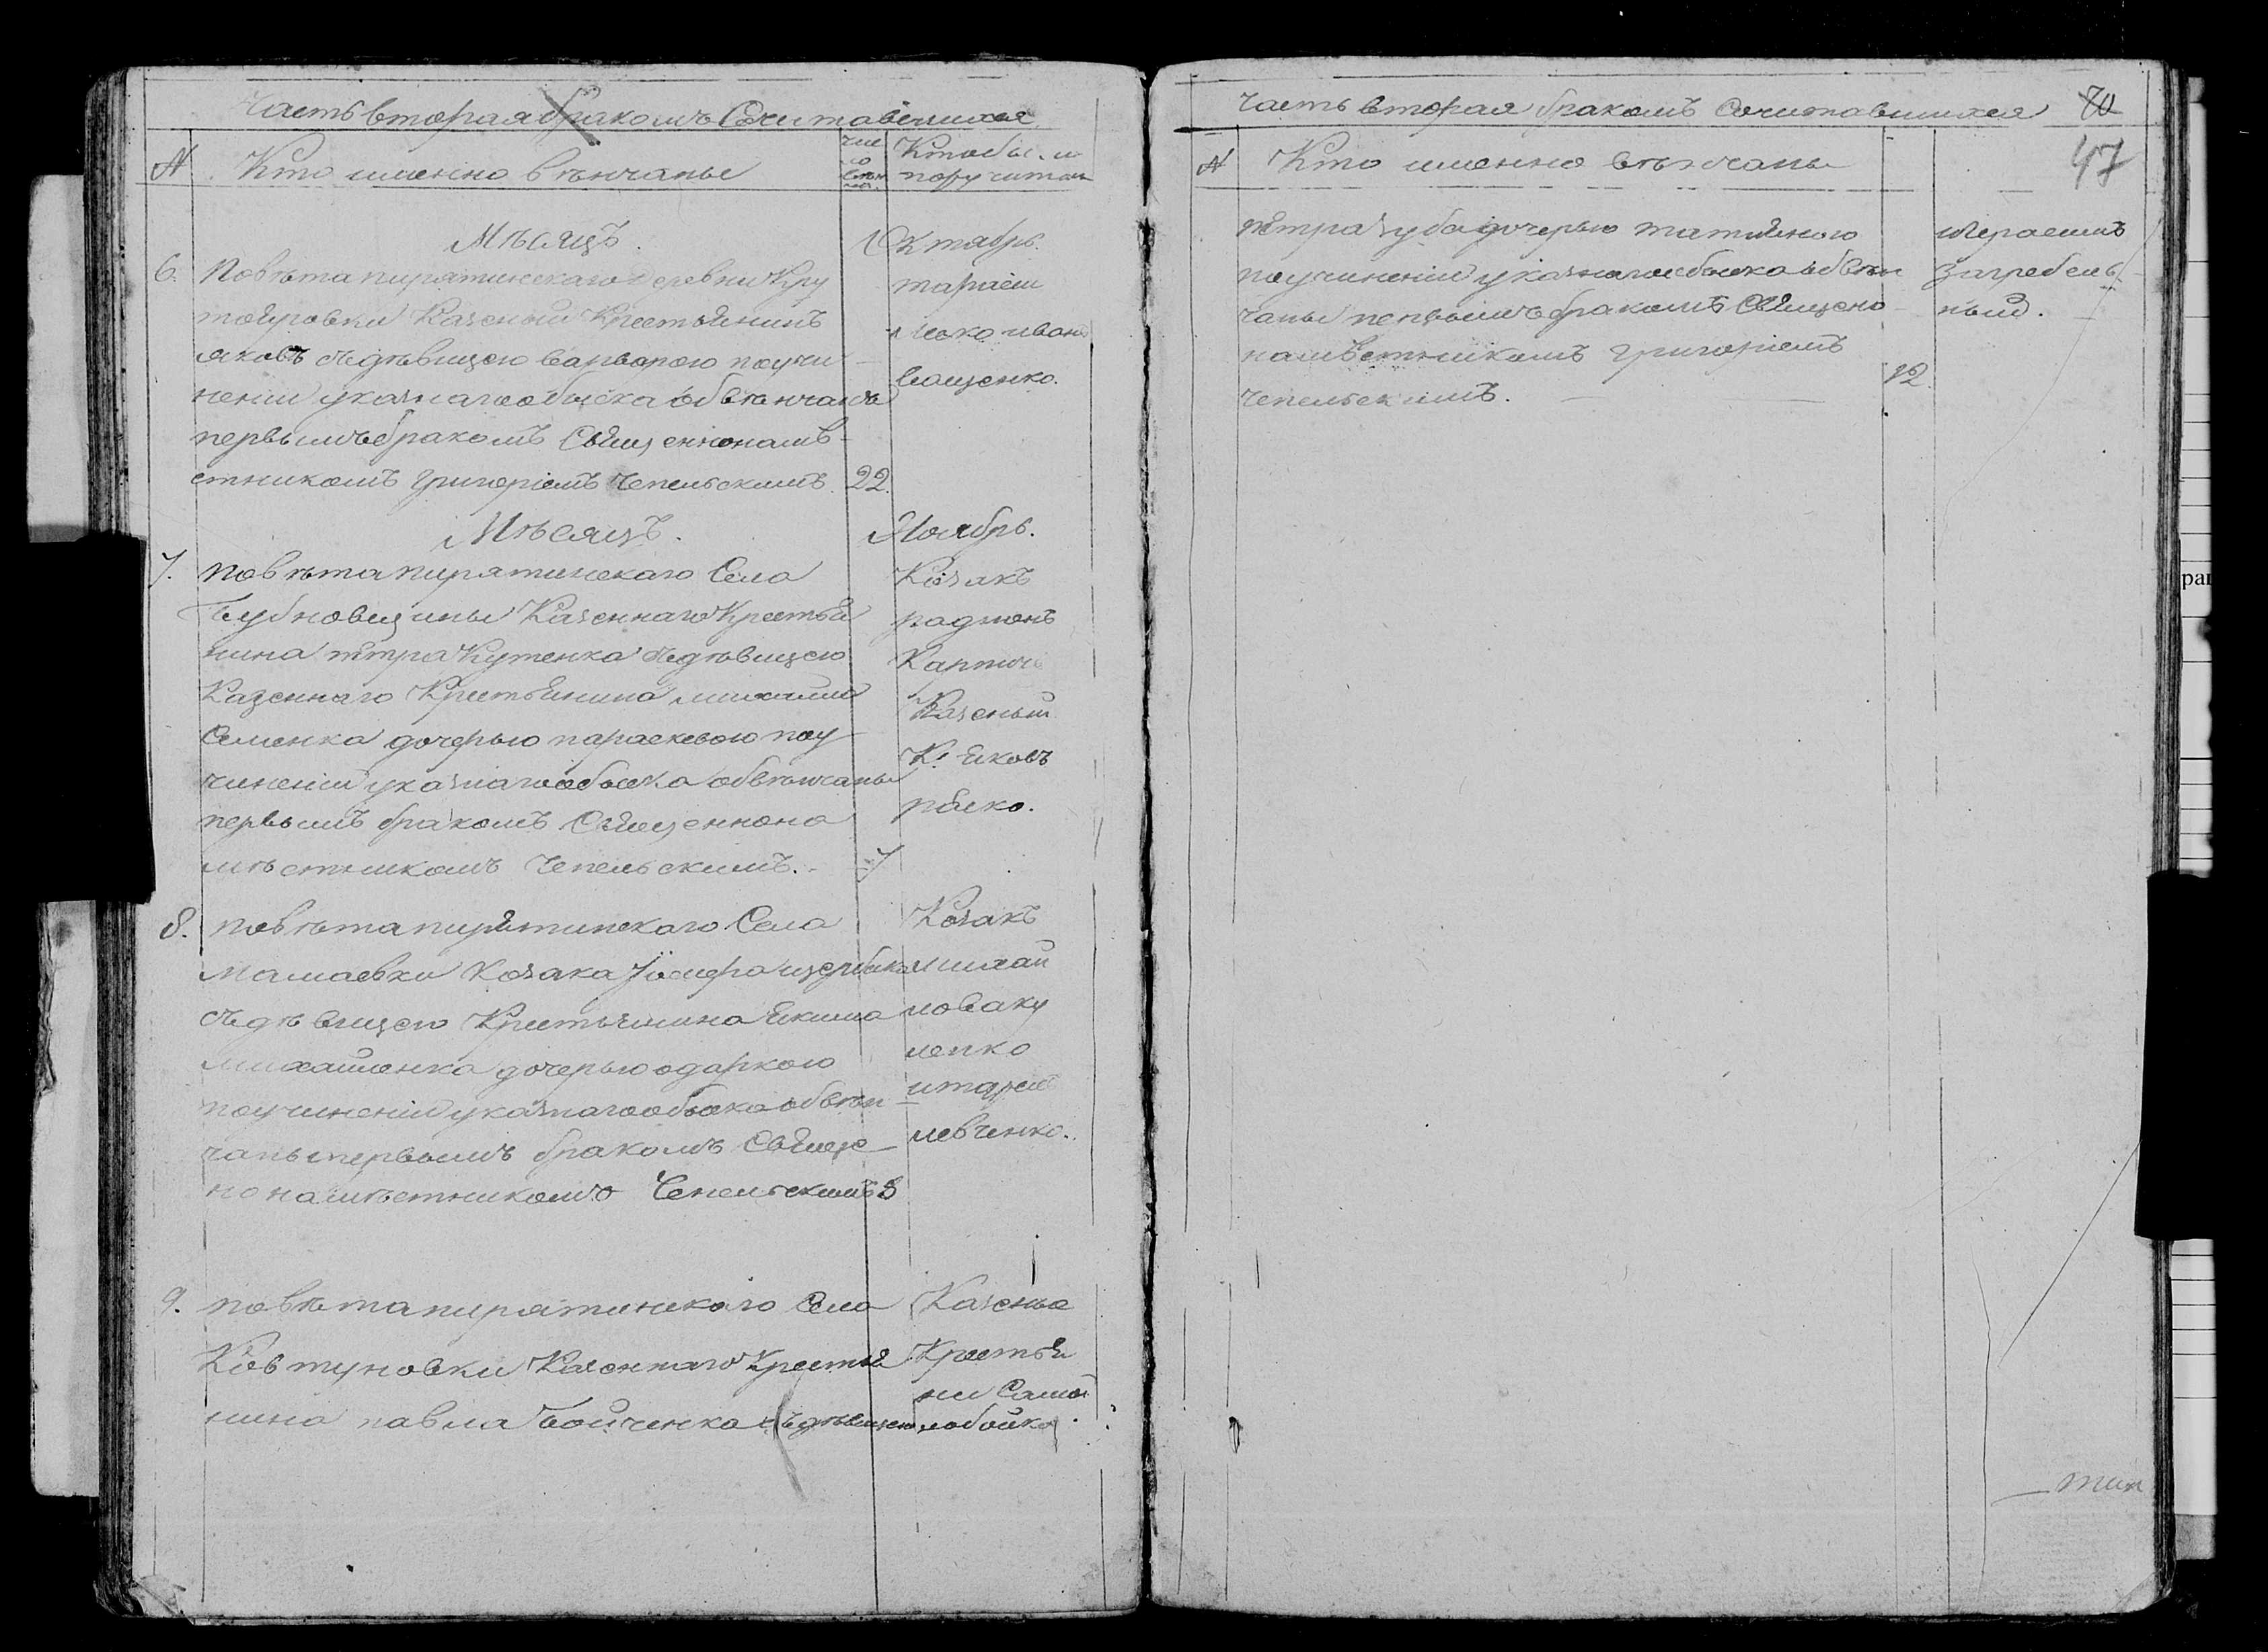 Часть вторая бракомъ Сочитавшихся
№ Кто именно венчаны
Кто были поручители
Мѣсяцъ. Октябрь.
6. Повѣта пирятинскаго деревни Кру
тояровки Казеный Крестьянинъ
яковъ съдѣвицею варварою поучи
неніи указнаго обыска обвѣнчанъ
первымъ бракомъ Священнонамѣ-
стникомъ Григоріемъ Чепельскимъ. 22.
ващенко.
Мѣсяцъ. Ноябрь.
7. повѣта пирятинскаго Села
Бубновщины Казеннаго Крестья
нина петра Кутенка съдѣвицею
Казеннаго Крестьянина михаила
Семенка дочерью параскевою поу
чиненіи указнаго обыска обвѣнчаны
первымъ бракомъ Священнона
мѣстникомъ Чепельскимъ. 7
Козакъ
радионъ
Казеный
Кр: яковъ
8. повѣта пирятинскаго Села
мамаевки Козака
съдѣвицею Крестьянина якима
михайленка дочерью одаркою
поучиненіи указнаго обыска обвѣн
чаны первымъ бракомъ Свяще
нонамѣстникомъ Чепельскимъ 8
Козакъ
михаи
ло ваку
ленко
левченко.
9. повѣта пирятинскаго Села
Ковтуновки Казеннаго Крестья
нина павла Бойченка съдѣвицею
Казеные
Крестья
не
часть вторая бракомъ Сочитавшихся 70
№ Кто именно вѣнчаны 47
петра зуба дочерью татияною
поучиненіи указнаго обыска обвѣн
чаны первымъ бракомъ Священо
намѣстникомъ григоріемъ
чепельскимъ. 12
игерасимъ
загребель
ный.